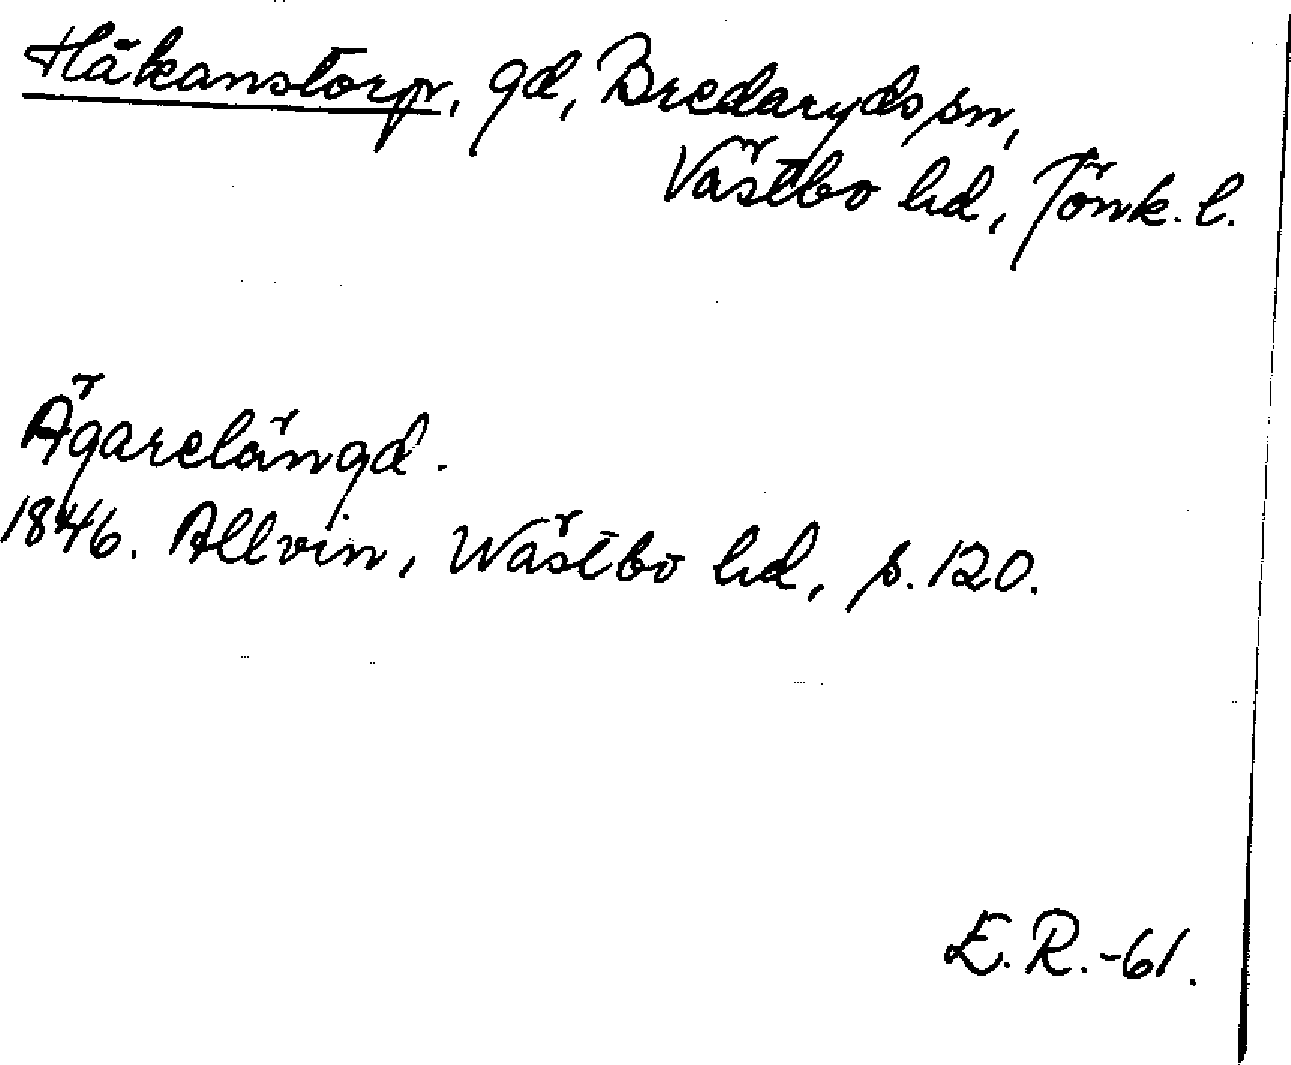 Håkanstorp, gd, Bredaryds sn,
Västbo hd, Jönk. l.
Ägarelängd.
1846. Allvin, Wästbo hd, s. 120.
E. R. -61.